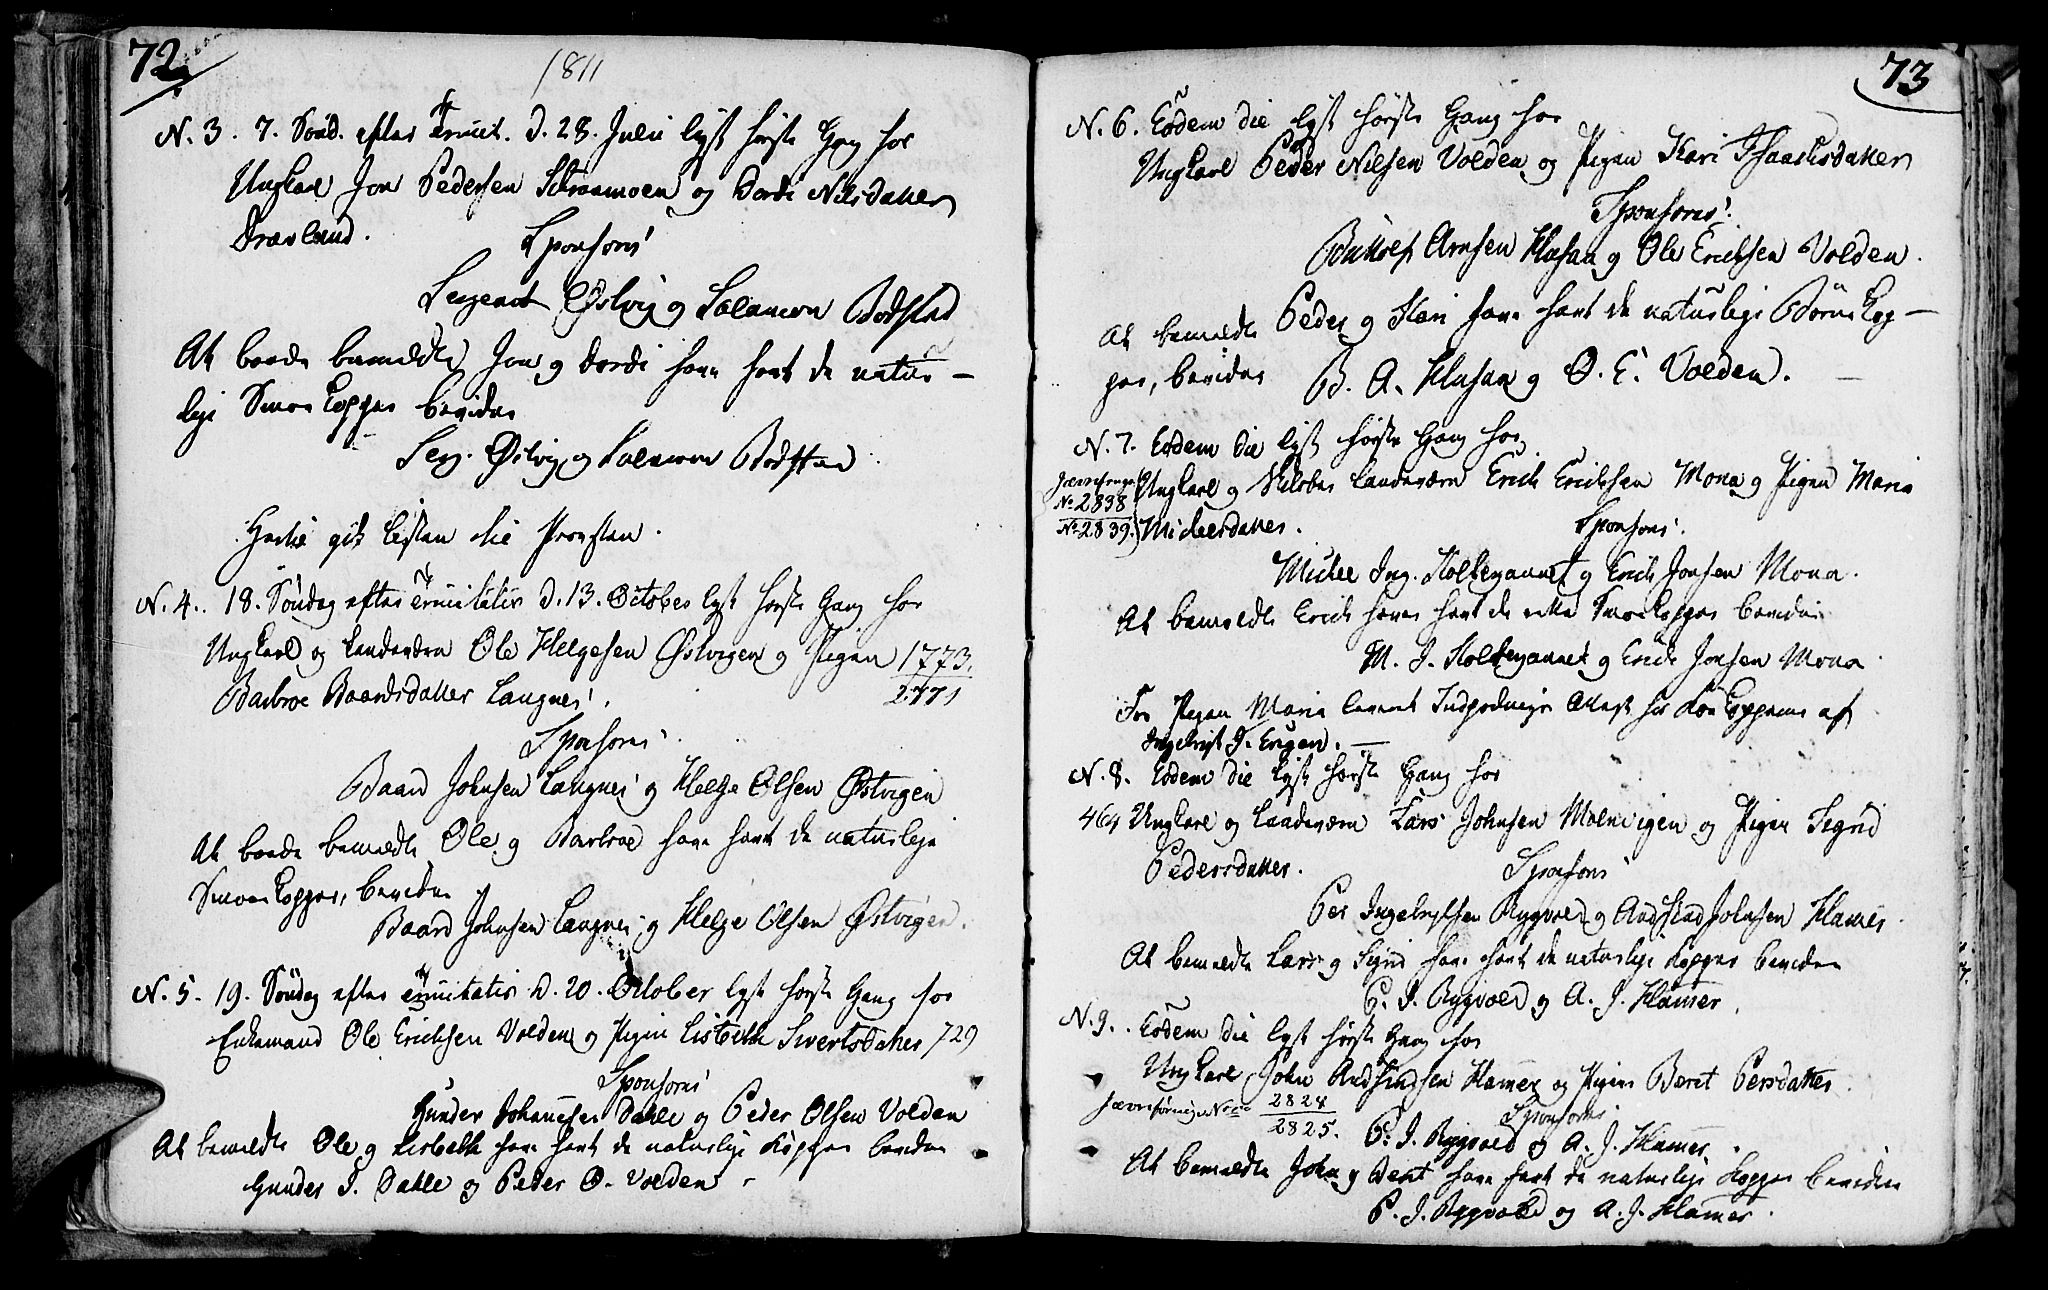 72.
1811
N. 3. 7. Sønd. efter Trinit. d. 28. Julii lyst første Gang for
Ungkarl Jon Pedersen Straamoen og Dordi Nilsdatter
Drævland.
Sponsores
Sergeant Østvig og Salamon Bodstad
At baade bemældte Jon og Dordi have havt de natur-
lige Smaa Kopper bevidner
Serg. Østvig og Salamon Bodstad.
Hertil gik Listen til Provsten.
N. 4. 18. Søndag efter Trinitatis d. 13. October lyst første Gang for
Ungkarl og Landeværn Ole Helgesen Østvigen og Pigen 1773.
Barbroe Baardsdatter Langnes. 2771
Sponsores
Baard Johnsen Langnes og Helge Olsen Østvigen
At baade bemældte Ole og Barbroe have havt de naturlige
Smaa Kopper, bevidner
Baard Johnsen Langnes og Helge Olsen Østvigen.
N. 5. 19. Søndag efter Trinitatis d. 20. October lyst første Gang for
Enkemand Ole Erichsen Volden og Pigen Lisbeth Sivertsdatter 729
Sponsores
Gunder Johannesen Dahle og Peder Olsen Volden
At bemældte Ole og Lisbeth have havt de naturlige Kopper bevidner
Gunder J. Dahle og Peder O. Volden
73
N. 6. Eodem die lyst første Gang for
Ungkarl Peder Nilsen Volden og Pigen Kari Isaachsdatter
Sponsores
Buttolf Arnsen Husan og Ole Erichsen Volden.
At bemældte Peder og Kari have havt de naturlige Børne Kop-
per, bevidner B. A. Husan og O. E. Volden.
N. 7. Eodem die lyst første Gang for
Jævnførings
No 2838
No 2839.
Ungkarl og Landeværn Erich Erichsen Mona og Pigen Maria
Michelsdatter. Sponsores
Michel Ing. Holtegannet og Erich Jonsen Mona.
At bemældte Erich haver havt de Smaakopper bevidner
M. I. Holtegannet og Erich Jonsen Mona.
For Pigen Maria leveret Indpodnings Attest for Koe Kopperne af
Ingebrigt J. Engan.
N. 8. Eodem die lyst første Gang for
464 Ungkarl og Landeværn Lars Johnsen Molnvigen og Pigen Sigrid
Pedersdatter. Sponsores
Per Ingebrigtsen Rygvold og Andstad Johnsen Hamer.
At bemældte Lars og Sigrid have havt de naturlige Kopper bevidner
P. I. Rygvold og A. J. Hamer.
N. 9. Eodem die lyst første Gang for
Ungkarl John Andstadsen Hamer og Pigen Beret Persdatter
Jævnførings No 2824
2825.
Sponsores
P. I. Rygvold og A. J. Hamer.
At bemældte John og Beret have havt de naturlige Kopper bevidner
P. I. Rygvold og A. J. Hamer.